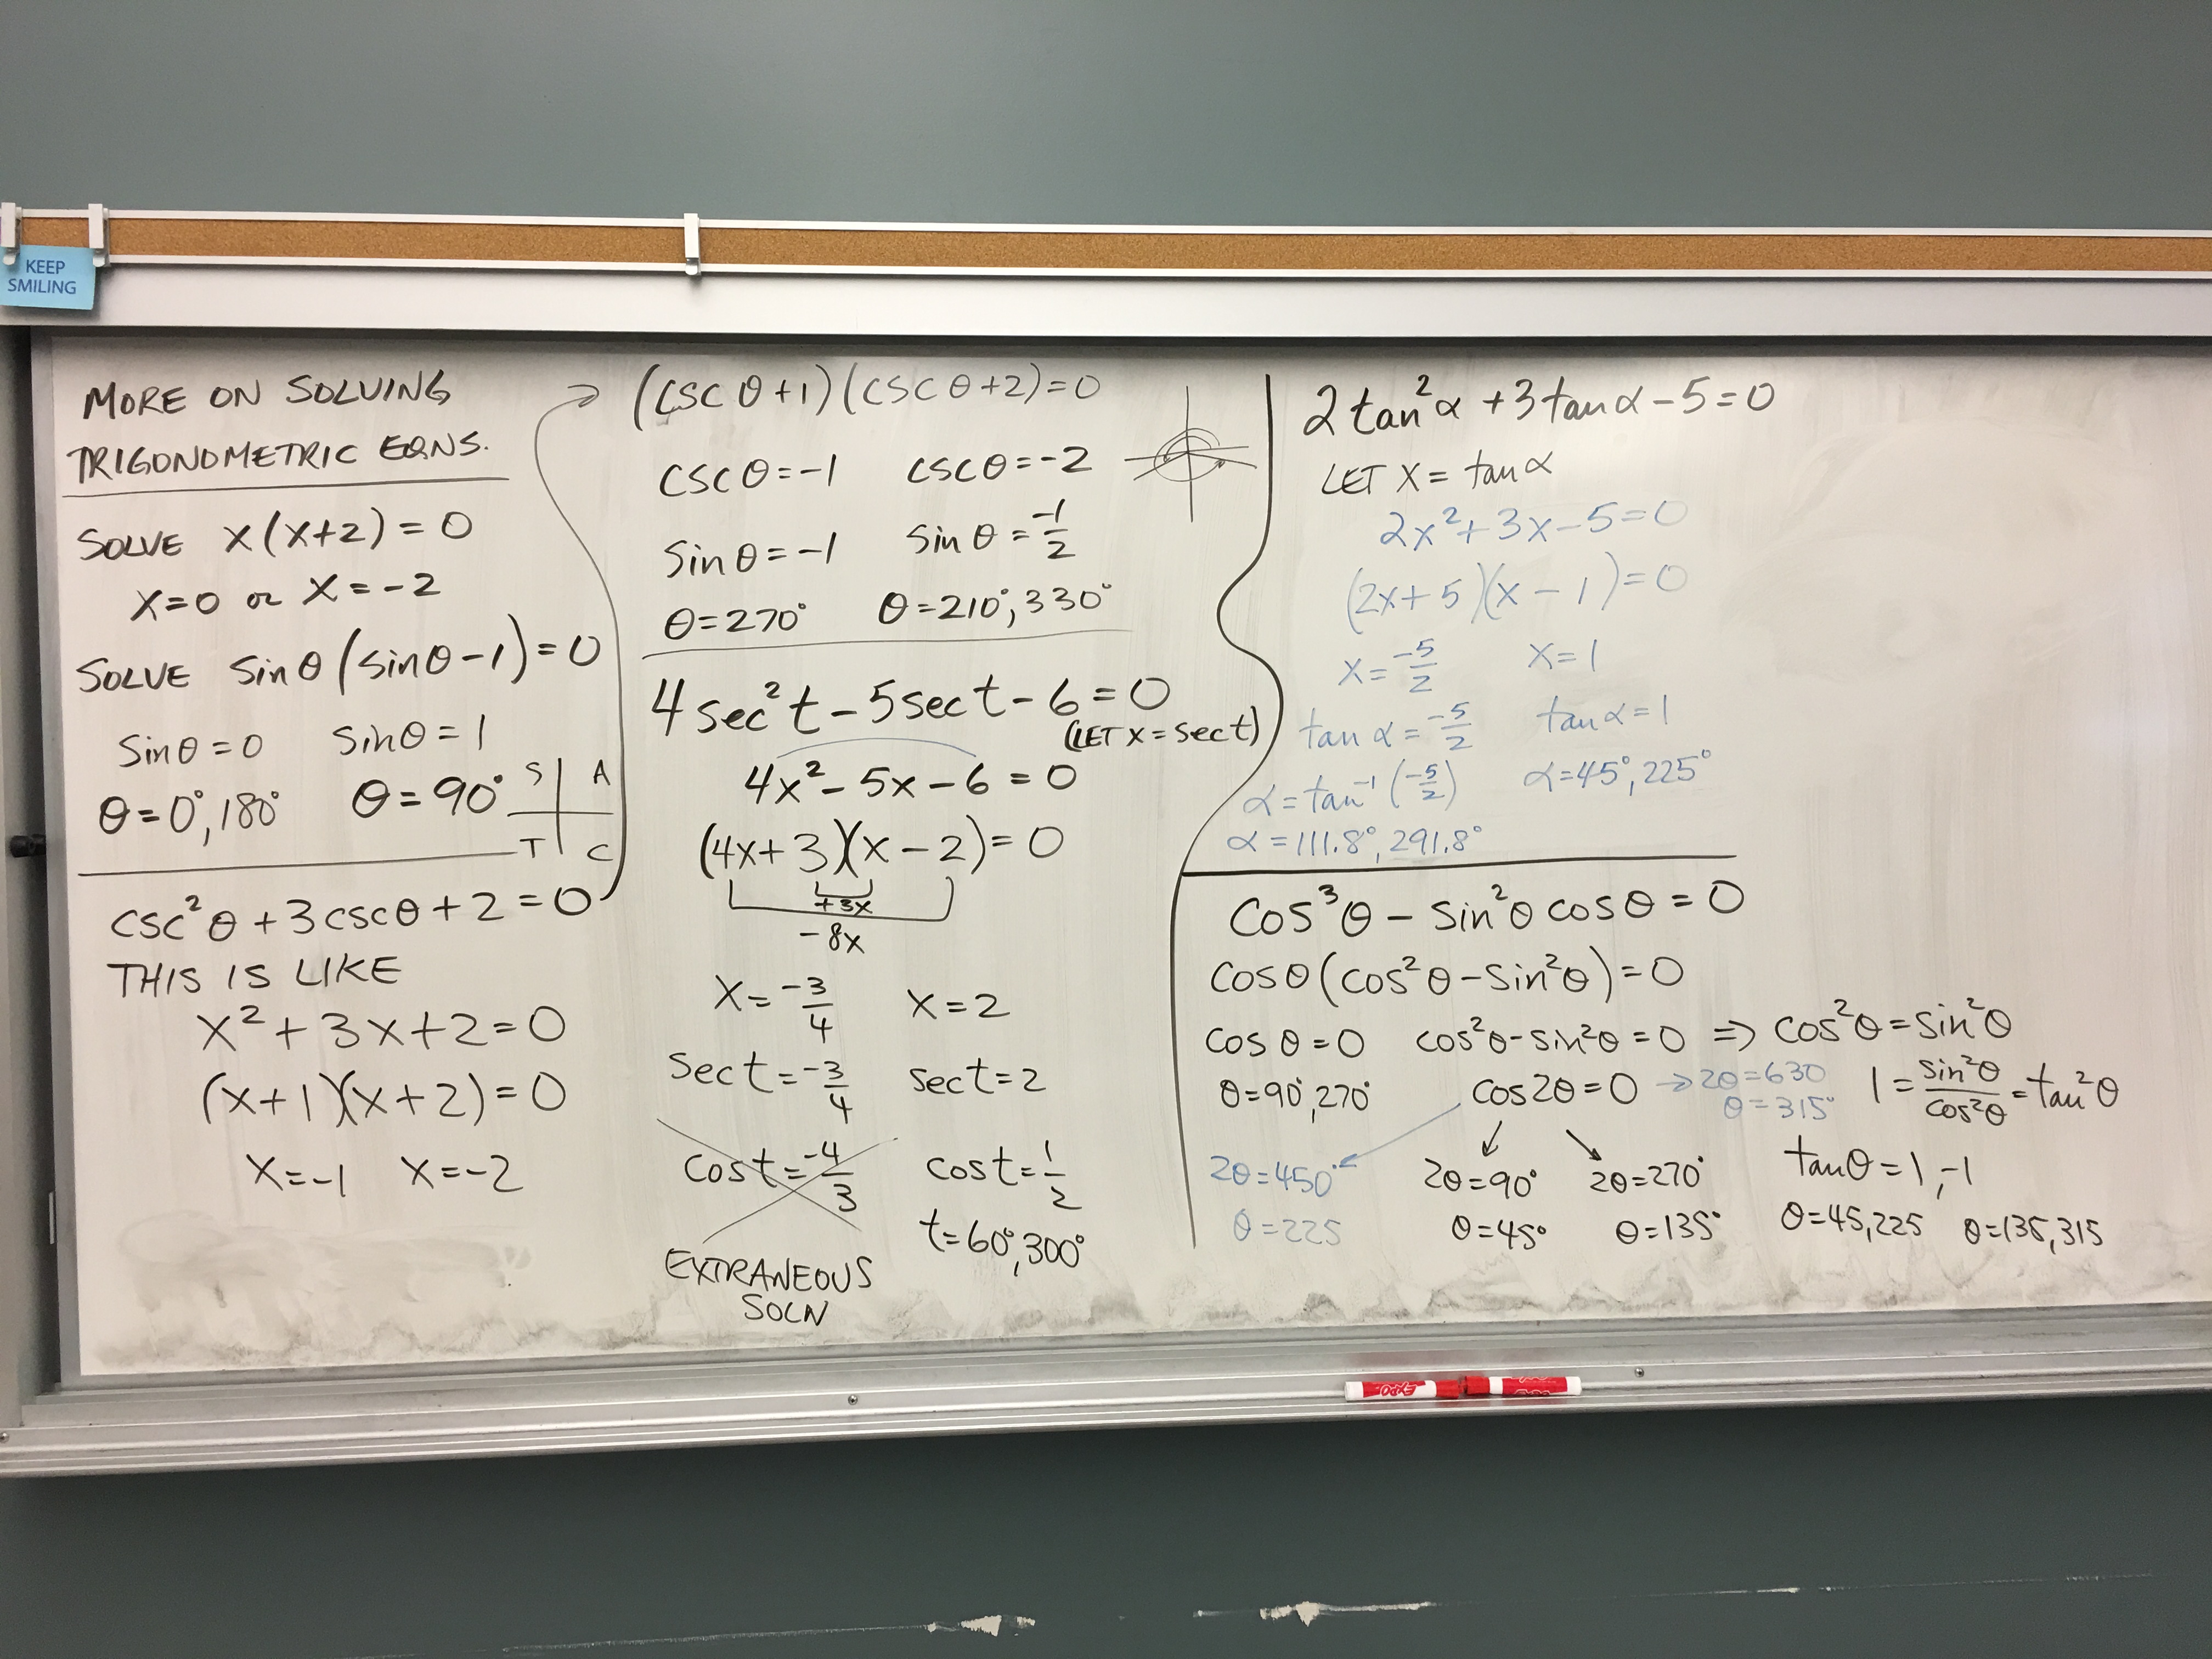 KEEP
SMILING
MORE ON SOLVING
TRIGONOMETRIC EQNS.
SOLVE x(x+2)=0
x=0 or x=-2
SOLVE sinθ(sinθ-1)=0
sinθ=0 sinθ=1
θ=0°,180° θ=90°
S A
T C
csc²θ+3cscθ+2=0
THIS IS LIKE
x²+3x+2=0
(x+1)(x+2)=0
x=-1 x=-2
(cscθ+1)(cscθ+2)=0
cscθ=-1 cscθ=-2
sinθ=-1 sinθ=-1/2
θ=270° θ=210°,330°
4sec²t-5sect-6=0
(LET x=sect)
4x²-5x-6=0
(4x+3)(x-2)=0
+3x
-8x
x=-3/4 x=2
sect=-3/4 sect=2
cost=-4/3 cost=1/2
t=60°,300°
EXTRANEOUS
SOLN
2tan²α+3tanα-5=0
LET x=tanα
2x²+3x-5=0
(2x+5)(x-1)=0
x=-5/2 x=1
tanα=-5/2 tanα=1
α=tan⁻¹(-5/2) α=45°,225°
α=111.8°,291.8°
cos³θ-sin²θcosθ=0
cosθ(cos²θ-sin²θ)=0
cosθ=0 cos²θ-sin²θ=0 ⇒ cos²θ=sin²θ
θ=90°,270° cos2θ=0 →2θ=630 1=sin²θ/cos²θ=tan²θ
θ=315°
2θ=450° 2θ=90° 2θ=270° tanθ=1,-1
θ=225 θ=45° θ=135° θ=45,225 θ=135,315
EXPO